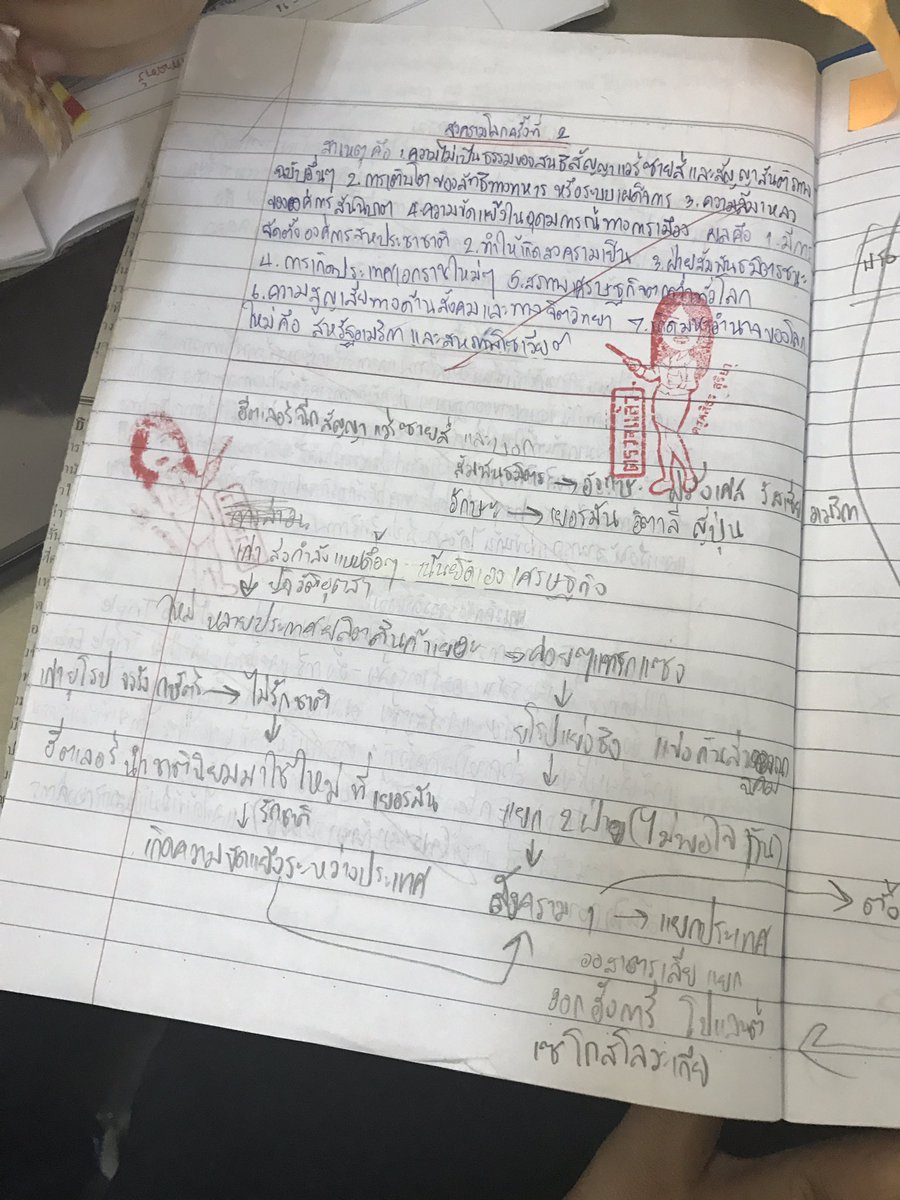 สงครามโลกครั้งที่ 2
สาเหตุ คือ 1.ความไม่เป็นธรรมของสนธิสัญญาแวร์ซายส์ และสัญญาสันติภาพ
ฉบับอื่นๆ 2. การเติบโตของลัทธิทางทหาร หรือระบบเผด็จการ 3. ความล้มเหลว
ขององค์การสันนิบาต 4.ความขัดแย้งในอุดมการณ์ทางการเมือง ผลคือ 1. มีการ
จัดตั้งองค์การสหประชาชาติ 2. ทำให้เกิดสงครามเย็น 3. ฝ่ายสัมพันธมิตรชนะ
4. การเกิดประเทศเอกราชใหม่ๆ 5. สภาพเศรษฐกิจตกต่ำทั่วโลก
6. ความสูญเสียทางด้านสังคมและทางจิตวิทยา 7. เกิดมหาอำนาจของโลก
ใหม่ คือ สหรัฐอเมริกา และสหภาพโซเวียต
ตรวจแล้ว
ฮิตเลอร์ฉีกสัญญาแวร์ซายส์ และ
สัมพันธมิตร → อังกฤษ ฝรั่งเศส รัสเซีย อเมริกา
อักษะ → เยอรมัน อิตาลี ญี่ปุ่น
เก่า ส่งกำลังแบบดื้อๆ เน้นยึดเอง เศรษฐกิจ
ใหม่ หลายประเทศผลิตสินค้าเยอะ → ค่อยๆแทรกแซง
เก่ายุโรป จงรักกษัตริย์ → ไม่รักชาติ
ยุโรปแย่งชิง แข่งกันล่าอาณานิคม
ฮิตเลอร์ นำชาตินิยมมาใช้ใหม่ ที่ เยอรมัน
แยก 2 ฝ่าย (ไม่พอใจกัน)
รักชาติ
เกิดความขัดแย้งระหว่างประเทศ
สงคราม 1 → แยกประเทศ
ออสเตรเลีย แยก
ออกฮังการี โปแลนด์
เซโกสโลวะเกีย